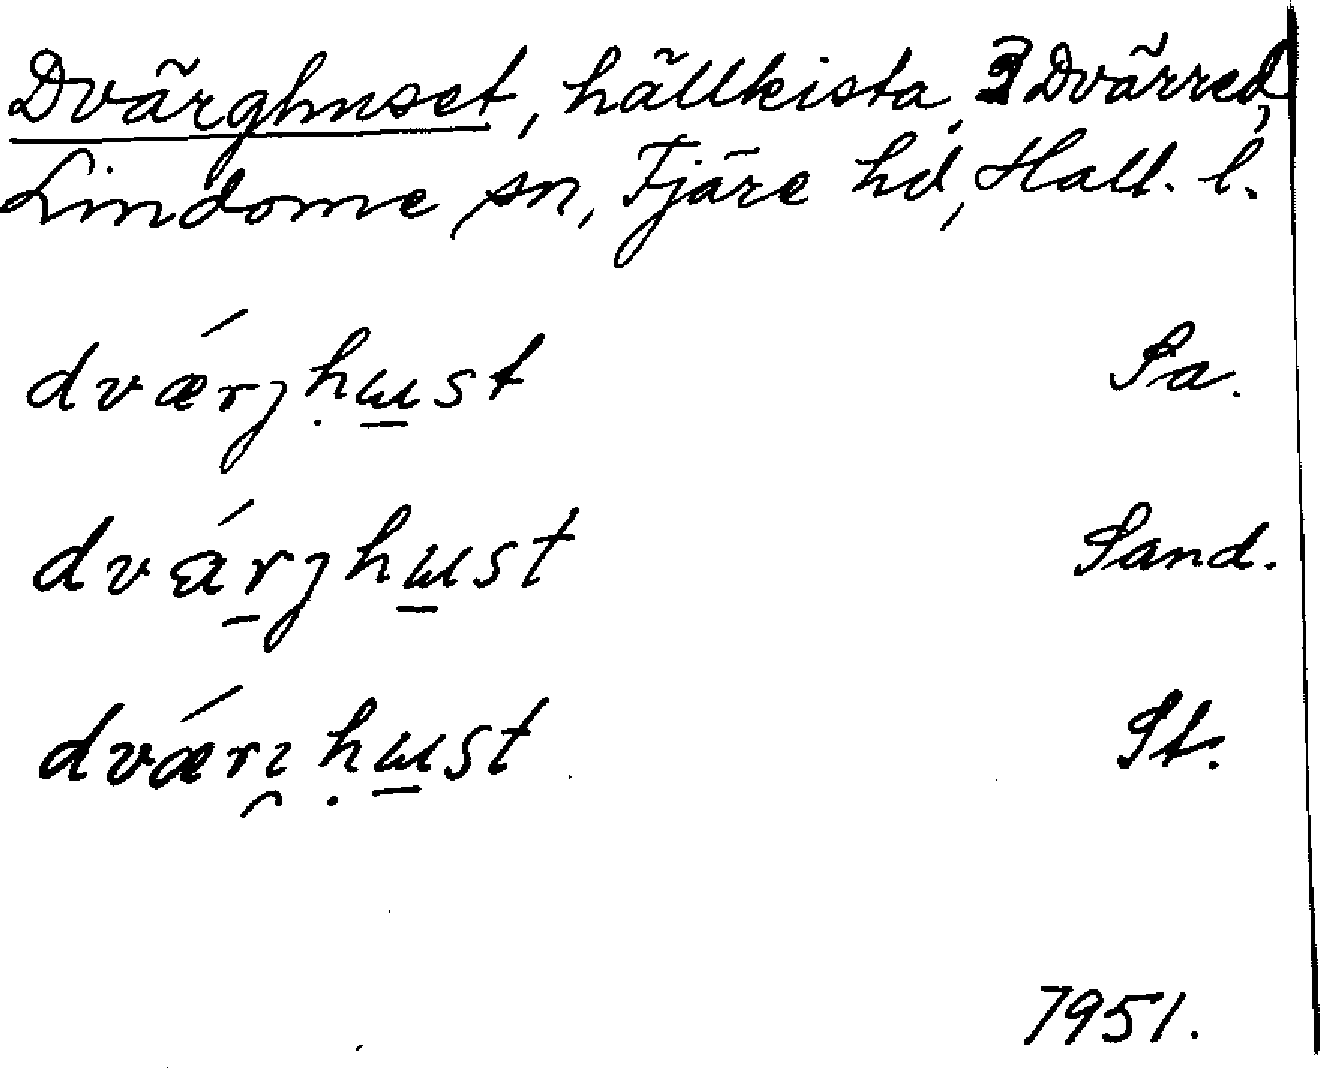 Dvärghuset, hällkista, 3 Dvärred,
Lindome sn, Fjäre hd, Hall. l.
dværjḥɯ̱st Sa.
dvár̠jhɯ̱st Sand.
dværıḥɯ̱st St.
7951.